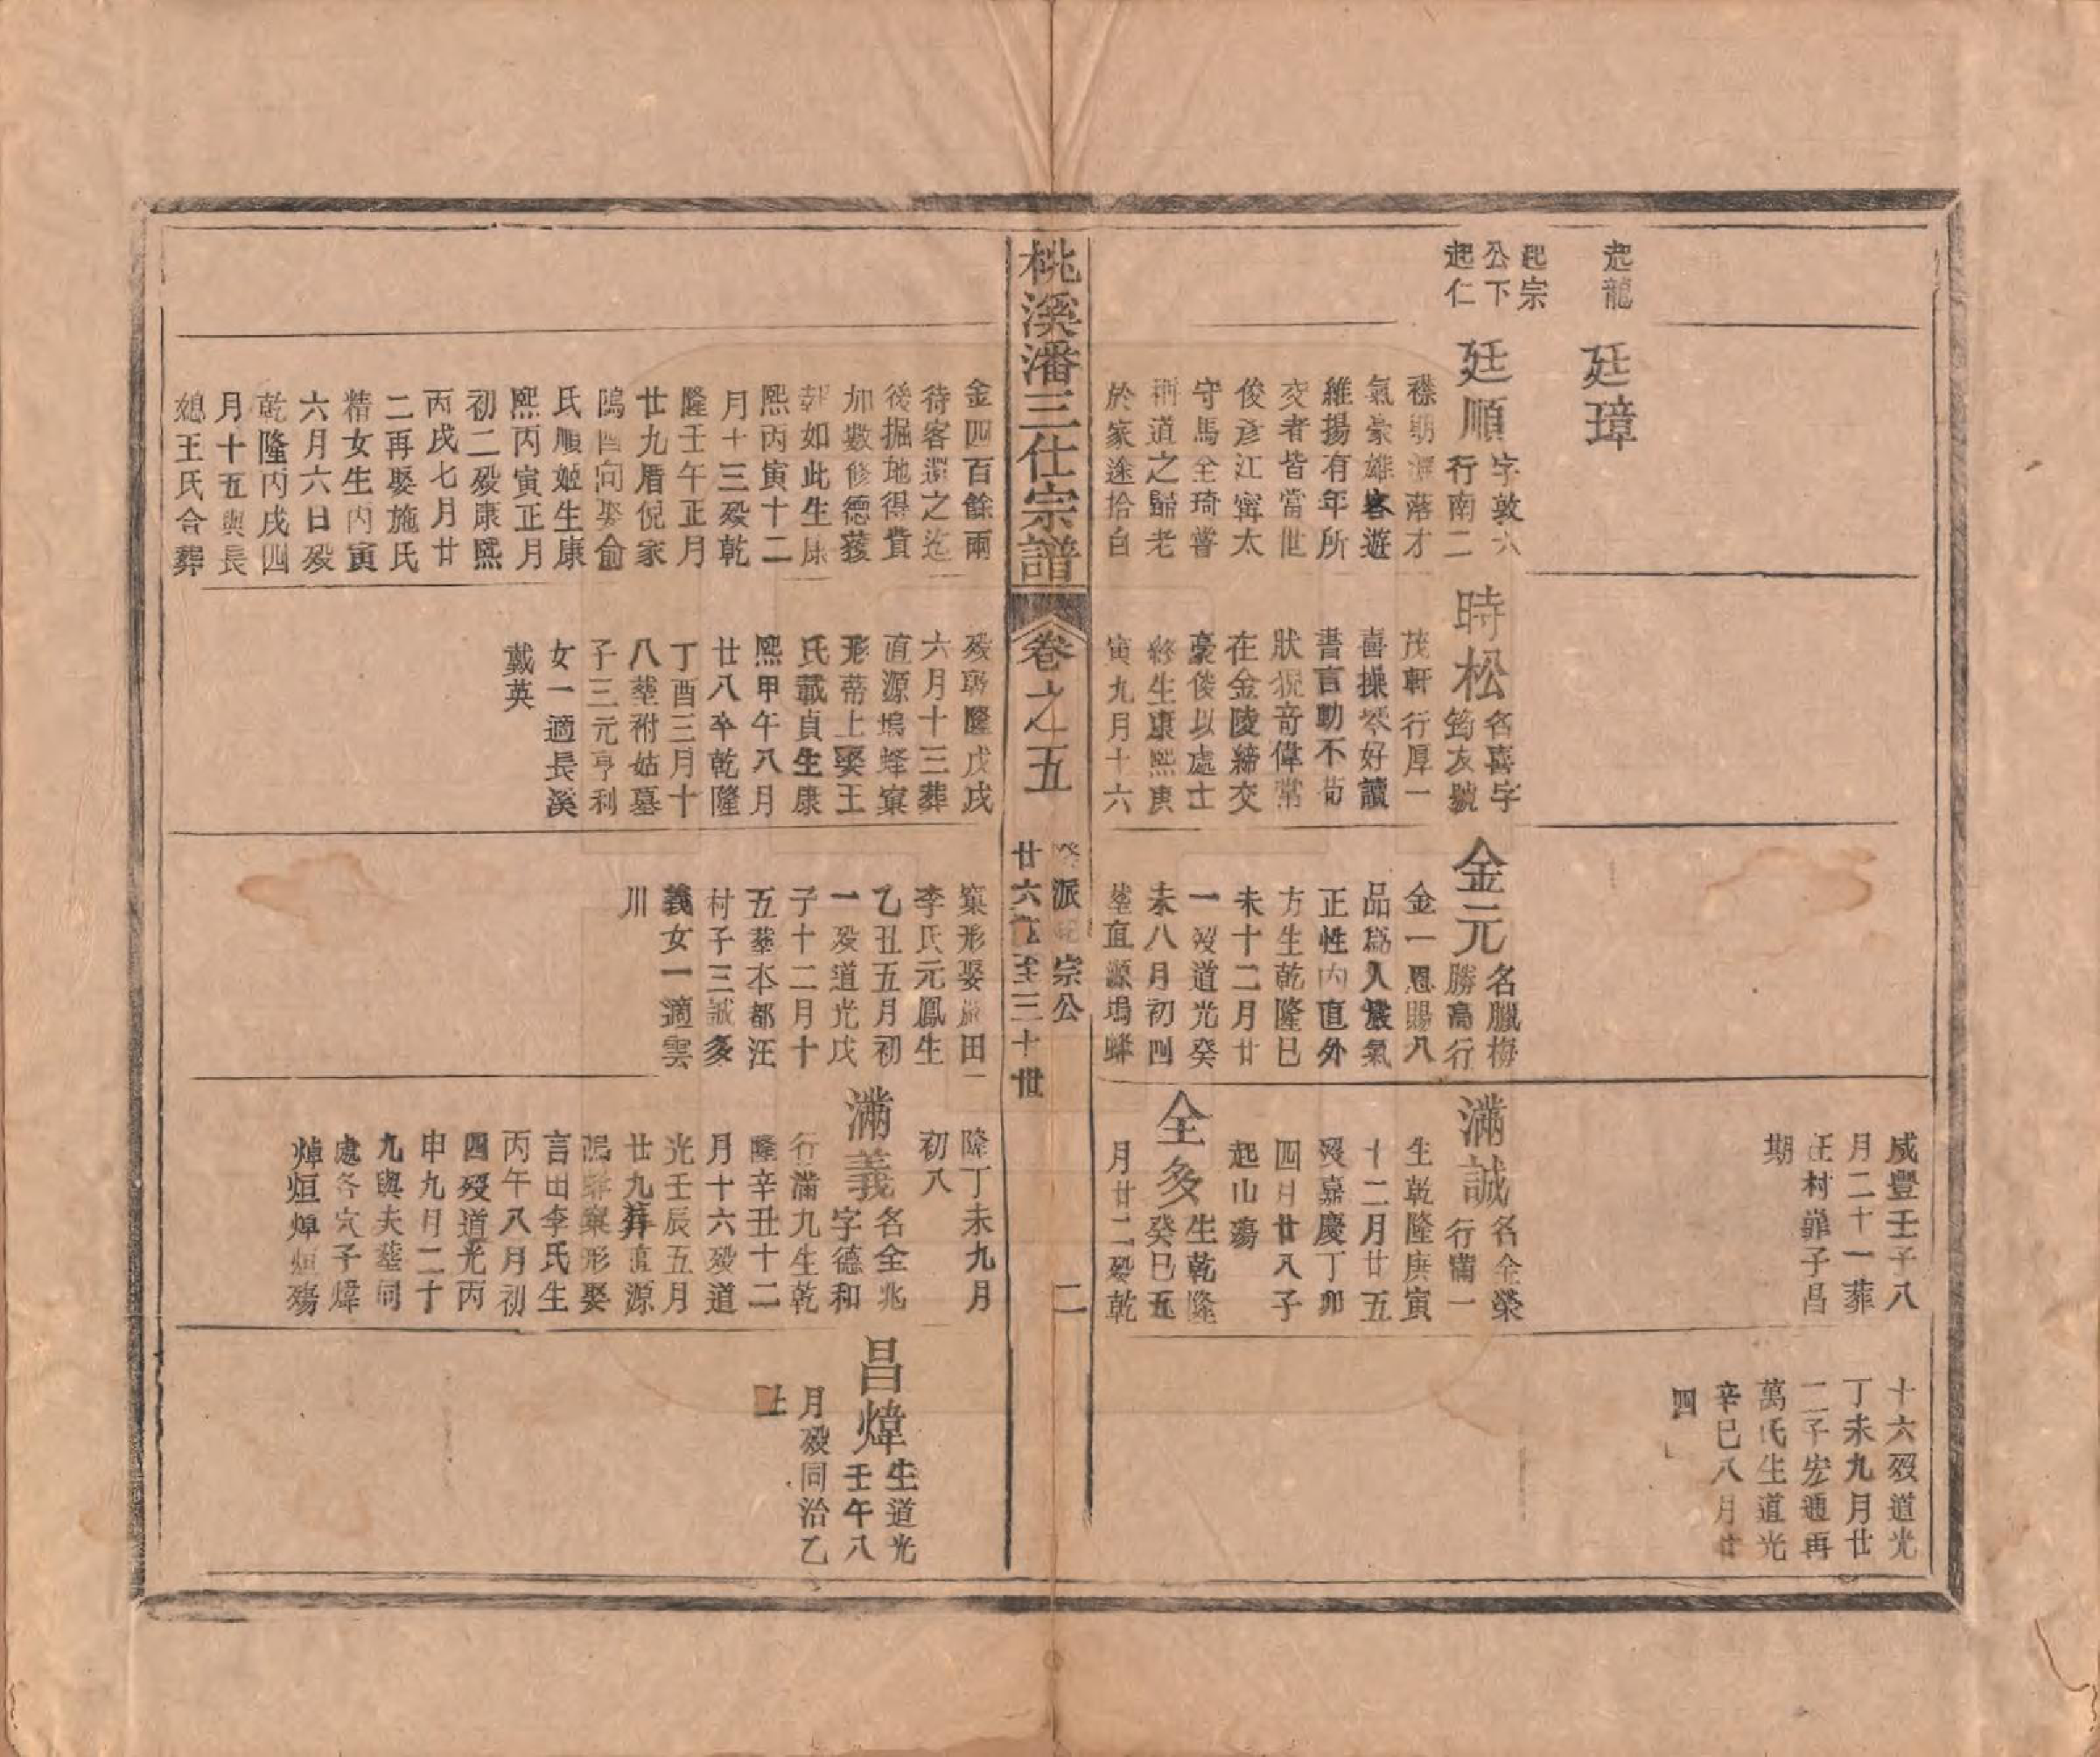 起龍
起宗
公下
起仁
廷璋
廷順
字敦六
行南二
襟期灑落才
氣豪雄客遊
維揚有年所
交者皆當世
俊彥江寗太
守馬全琦嘗
稱道之歸老
於家途拾白
時松
名喜字
筠友號
茂軒行厚一
喜操琴好讀
書言動不苟
狀貌竒偉常
在金陵締交
豪俊以處士
終生康熙庚
寅九月十六
金元
名臘梅
勝高行
金一恩賜八
品為人嚴氣
正性內直外
方生乾隆巳
未十二月廿
一歿道光癸
未八月初四
塟直源塢蜂
咸豐壬子八
月二十一葬
汪村葬子昌
期
滿誠
名全榮
行滿一
生乾隆庚寅
十二月廿五
歿嘉慶丁卯
四月廿八子
起山殤
全多
生乾隆
癸巳五
月廿二歿乾
十六歿道光
丁未九月廿
二子宏通再
萬氏生道光
辛巳八月廿
四
桃溪潘三仕宗譜
卷之五
派起宗公
廿六世至三十世
二
金四百餘兩
待客還之迄
後掘地得貲
加數修德獲
報如此生康
熙丙寅十二
月十三歿乾
隆壬午正月
廿九厝倪家
塢酉向娶俞
氏順姬生康
熙丙寅正月
初二歿康熙
丙戌七月廿
二再娶施氏
精女生丙寅
六月六日歿
乾隆丙戌四
月十五與長
媳王氏合葬
歿乾隆戊戌
六月十三葬
直源塢蜂窠
形蒂上娶王
氏戴貞生康
熙甲午八月
廿八卒乾隆
丁酉三月十
八塟祔姑墓
子三元亨利
女一適長溪
戴英
窠形娶嚴田
李氏元鳳生
乙丑五月初
一歿道光戊
子十二月十
五塟本都汪
村子三誠多
義女一適雲
川
隆丁未九月
初八
滿義
名全兆
字德和
行滿九生乾
隆辛丑十二
月十六歿道
光壬辰五月
廿九葬直源
塢蜂窠形娶
言田李氏生
丙午八月初
四歿道光丙
申九月二十
九與夫塟同
處各穴子煒
焯烜焯烜殤
昌煒
生道光
壬午八
月歿同治乙
丑